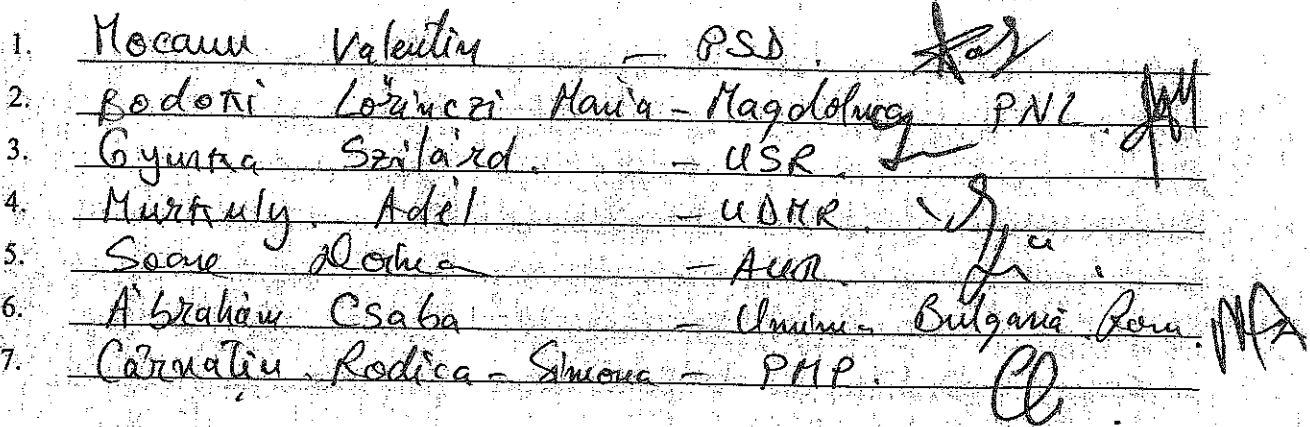 1. Mocanu Valentin - PSD.
2. Bodoki Lőrinczi Maria - Magdolna PNL.
3. Gyurka Szilárd. - USR.
4. Murkuly. Adél - UDMR.
5. Soare Dorina - AUR.
6. Ábrahám Csaba - Uniunea Bulgară Rom.
7. Cârnațiu. Rodica - Simona - PMP.